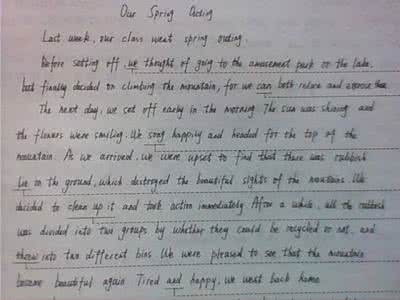 Our Spring Outing
Last week, our class went spring outing.
Before setting off, we thought of going to the amusement park or the lake,
but finally decided on climbing the mountain, for we can both relax and exercise there
The next day, we set off early in the morning. The sun was shining and
the flowers were smiling. We song happily and headed for the top of the
mountain. As we arrived, we were upset to find that there was rubbish
lie on the ground, which destroyed the beautiful sights of the mountains. We
decided to clean up it and took action immediately. After a while, all the rubbish
was divided into two groups by whether they could be recycled or not, and
threw into two different bins. We were pleased to see that the mountain
became beautiful again. Tired and happy, we went back home